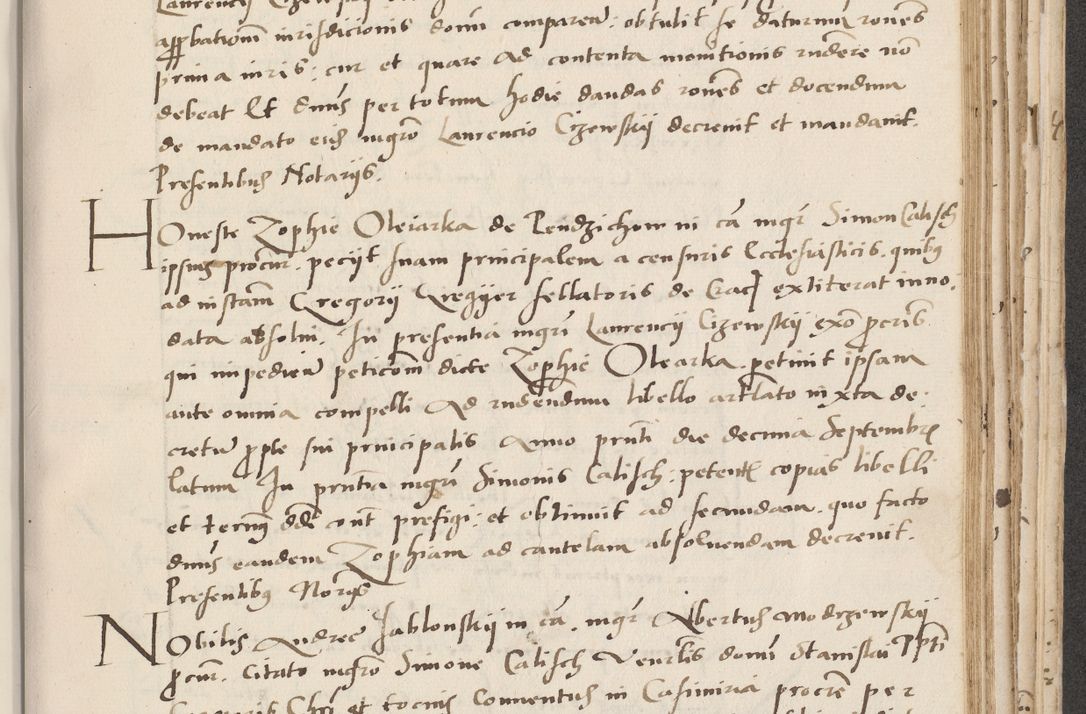 Laurencii Cizewskij
apprbationem iurisdicionis domini comparens: obtulit se daturum rones
prima iuris: cur et quare ad contenta monitionis rndere no
debeat Et dnus per totum hodie dandas rones et docendum
de mandato eidem mgro Laurencio Cizewskij decrevit et mandavit.
Presentibus Notarijs.
Honeste Zophie Oleiarka de Pendzichow in ca mgr Simon Calisch
ipsius procur. peciit suam principalem a censuris Ecclesiasticis. quibus
ad instam Gregorij Kregijer sellatoris de Crac extiterat inno-
data absolvi. In presentia mgri Laurencij Cizewskij exo peris
qui impediens peticom dicte Zophie Olearka. petivit ipsam
ante omnia compelli ad rndendum libello articulato iuxta de-
cretum propte sui principalis Anno prnti die decima Septembris
latum In prntia mgri Simonis Calisch: petentis copias libelli
et termin ddi cont prefigi: et obtinuit ad secundam. quo facto
dnus eandem Zophiam ad cautelam absolvendam decrevit.
Presentibus Noris
Nobilis Andree Jablonskij in ca. mgr Albertus Modrzewskij
procur. citato mgro Simone Calisch Venrlis domini Stanislai Ppti
Corporis Chri et tocius Conventus in Casimiria procre per